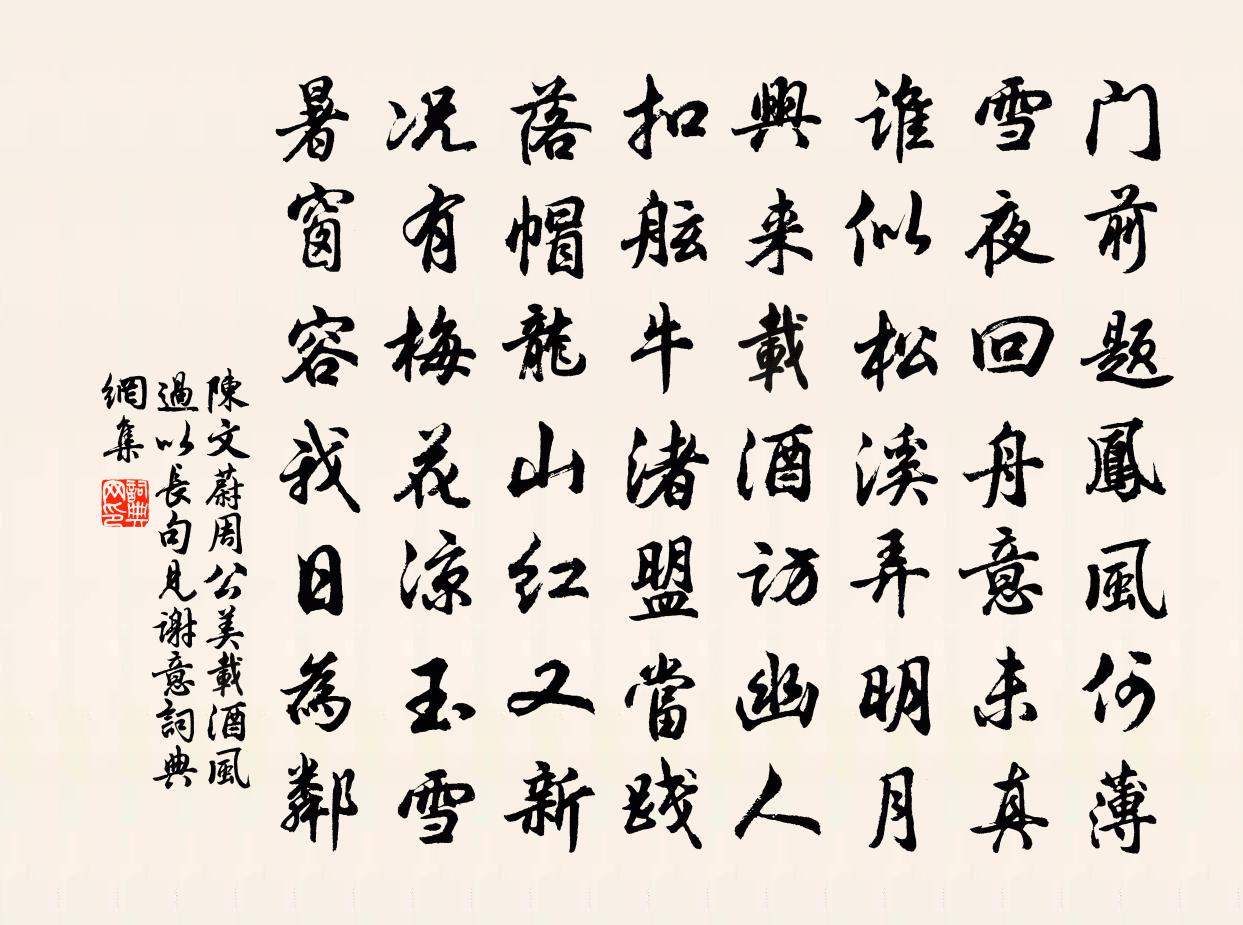 门前题鳳風何薄
雪夜回舟意未真
谁似松溪弄明月
興来載酒访幽人
扣舷牛渚盟當践
落帽龍山红又新
况有梅花凉玉雪
暑窗容我日為鄰
陳文蔚周公美載酒風
過以長句見谢意詞典
網集
詞典
网印